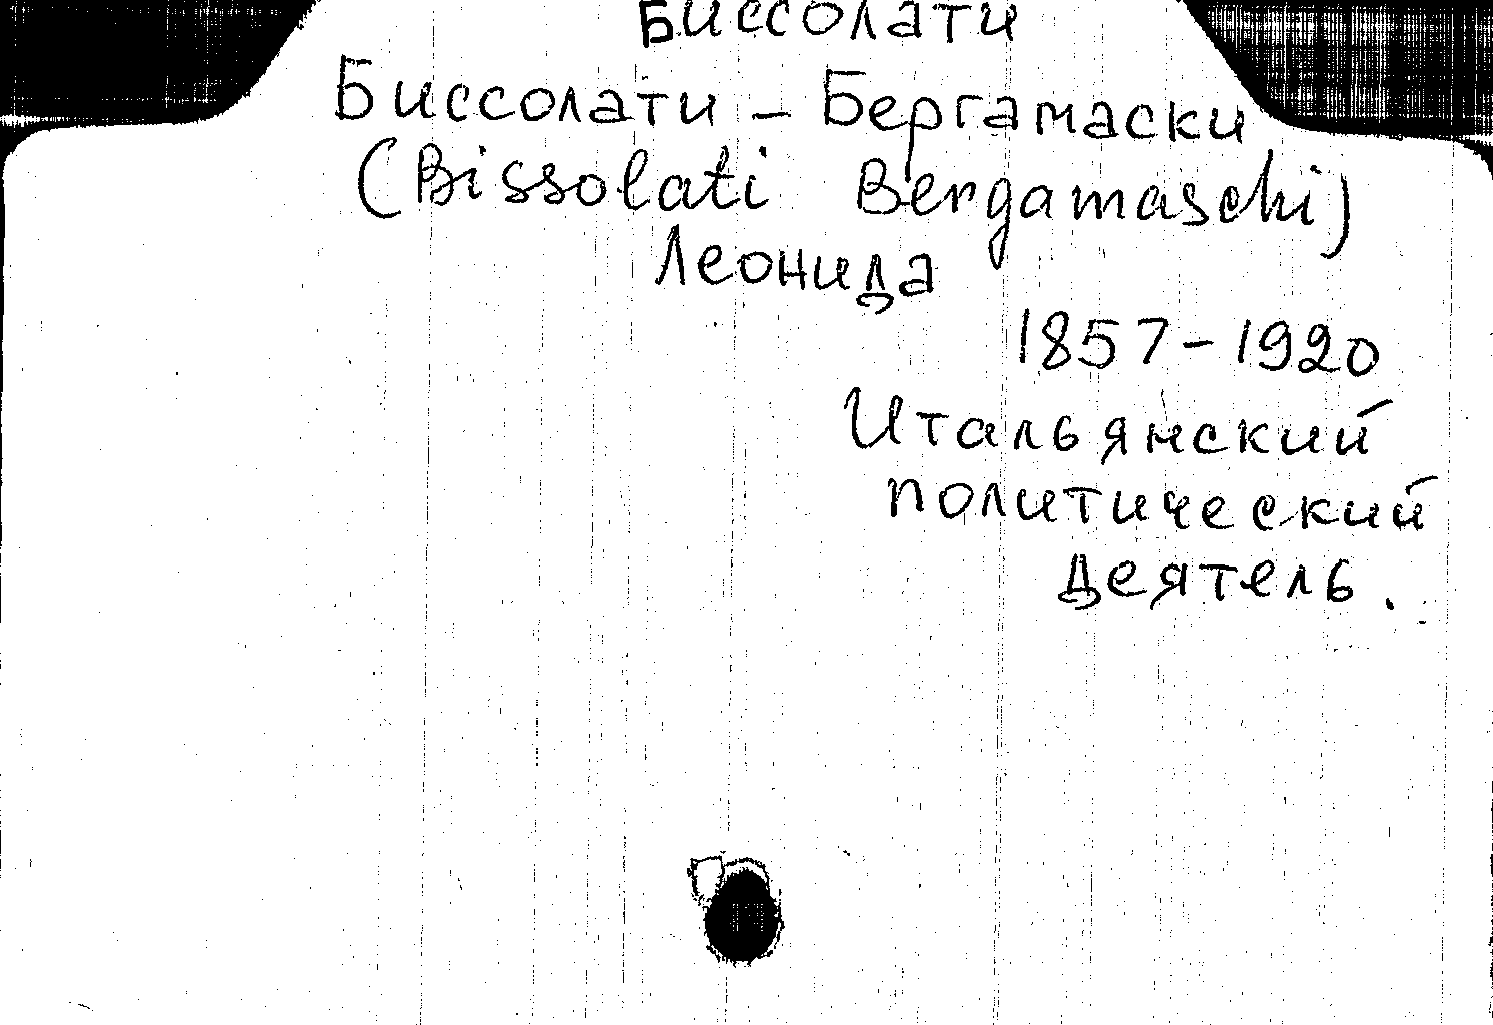 Биссолати
Биссолати - Бергамаски
(Bissolati Bergamaschi)
Леонида
1857-1920
Итальянский
политический
деятель.